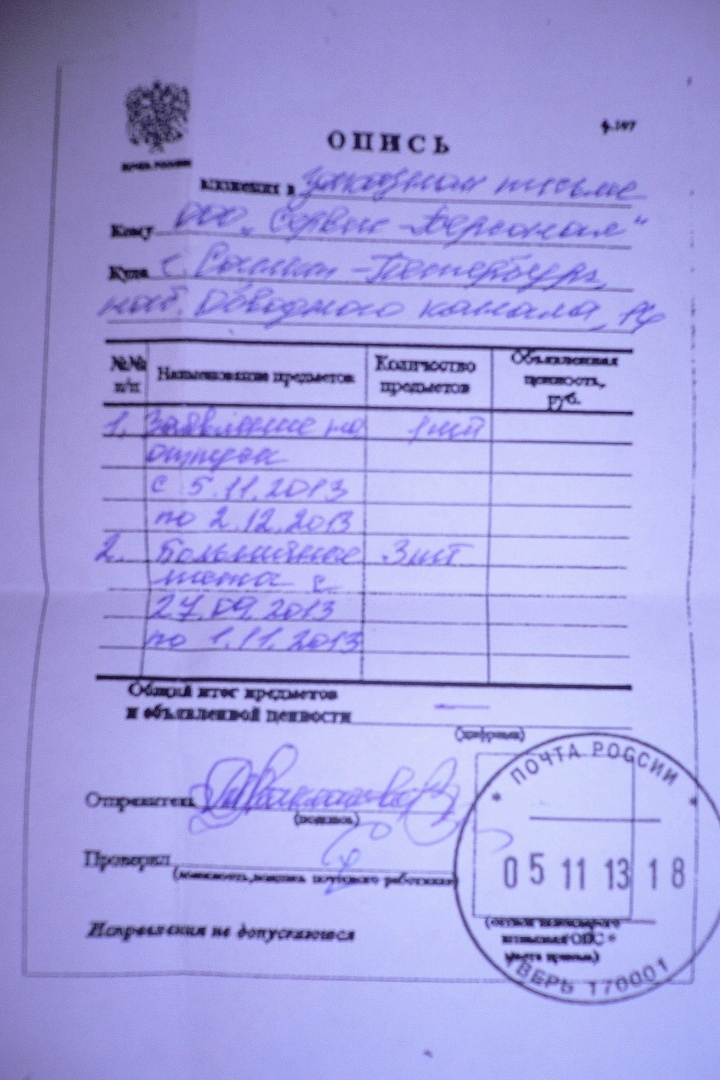 ф.107
ОПИСЬ
ПОЧТА РОССИИ
вложения в заказном письме
Кому ООО "Сервис-Персонал"
Куда г. Санкт-Петербург,
наб. Обводного канала,
№№ п/п
Наименование предметов
Количество предметов
Объявленная ценность, руб.
1. Заявление на 1 шт
отпуск
с 5.11.2013
по 2.12.2013
2. Больничные 3 шт
листы с
27.09.2013
по 1.11.2013
Общий итог предметов
и объявленной ценности —
(цифрами)
Отправитель
(подпись)
Проверил
(должность, подпись почтового работника)
Исправления не допускаются
ПОЧТА РОССИИ
05 11 13 18
(оттиск календарного
штемпеля ОПС
места приема)
ТВЕРЬ 170001